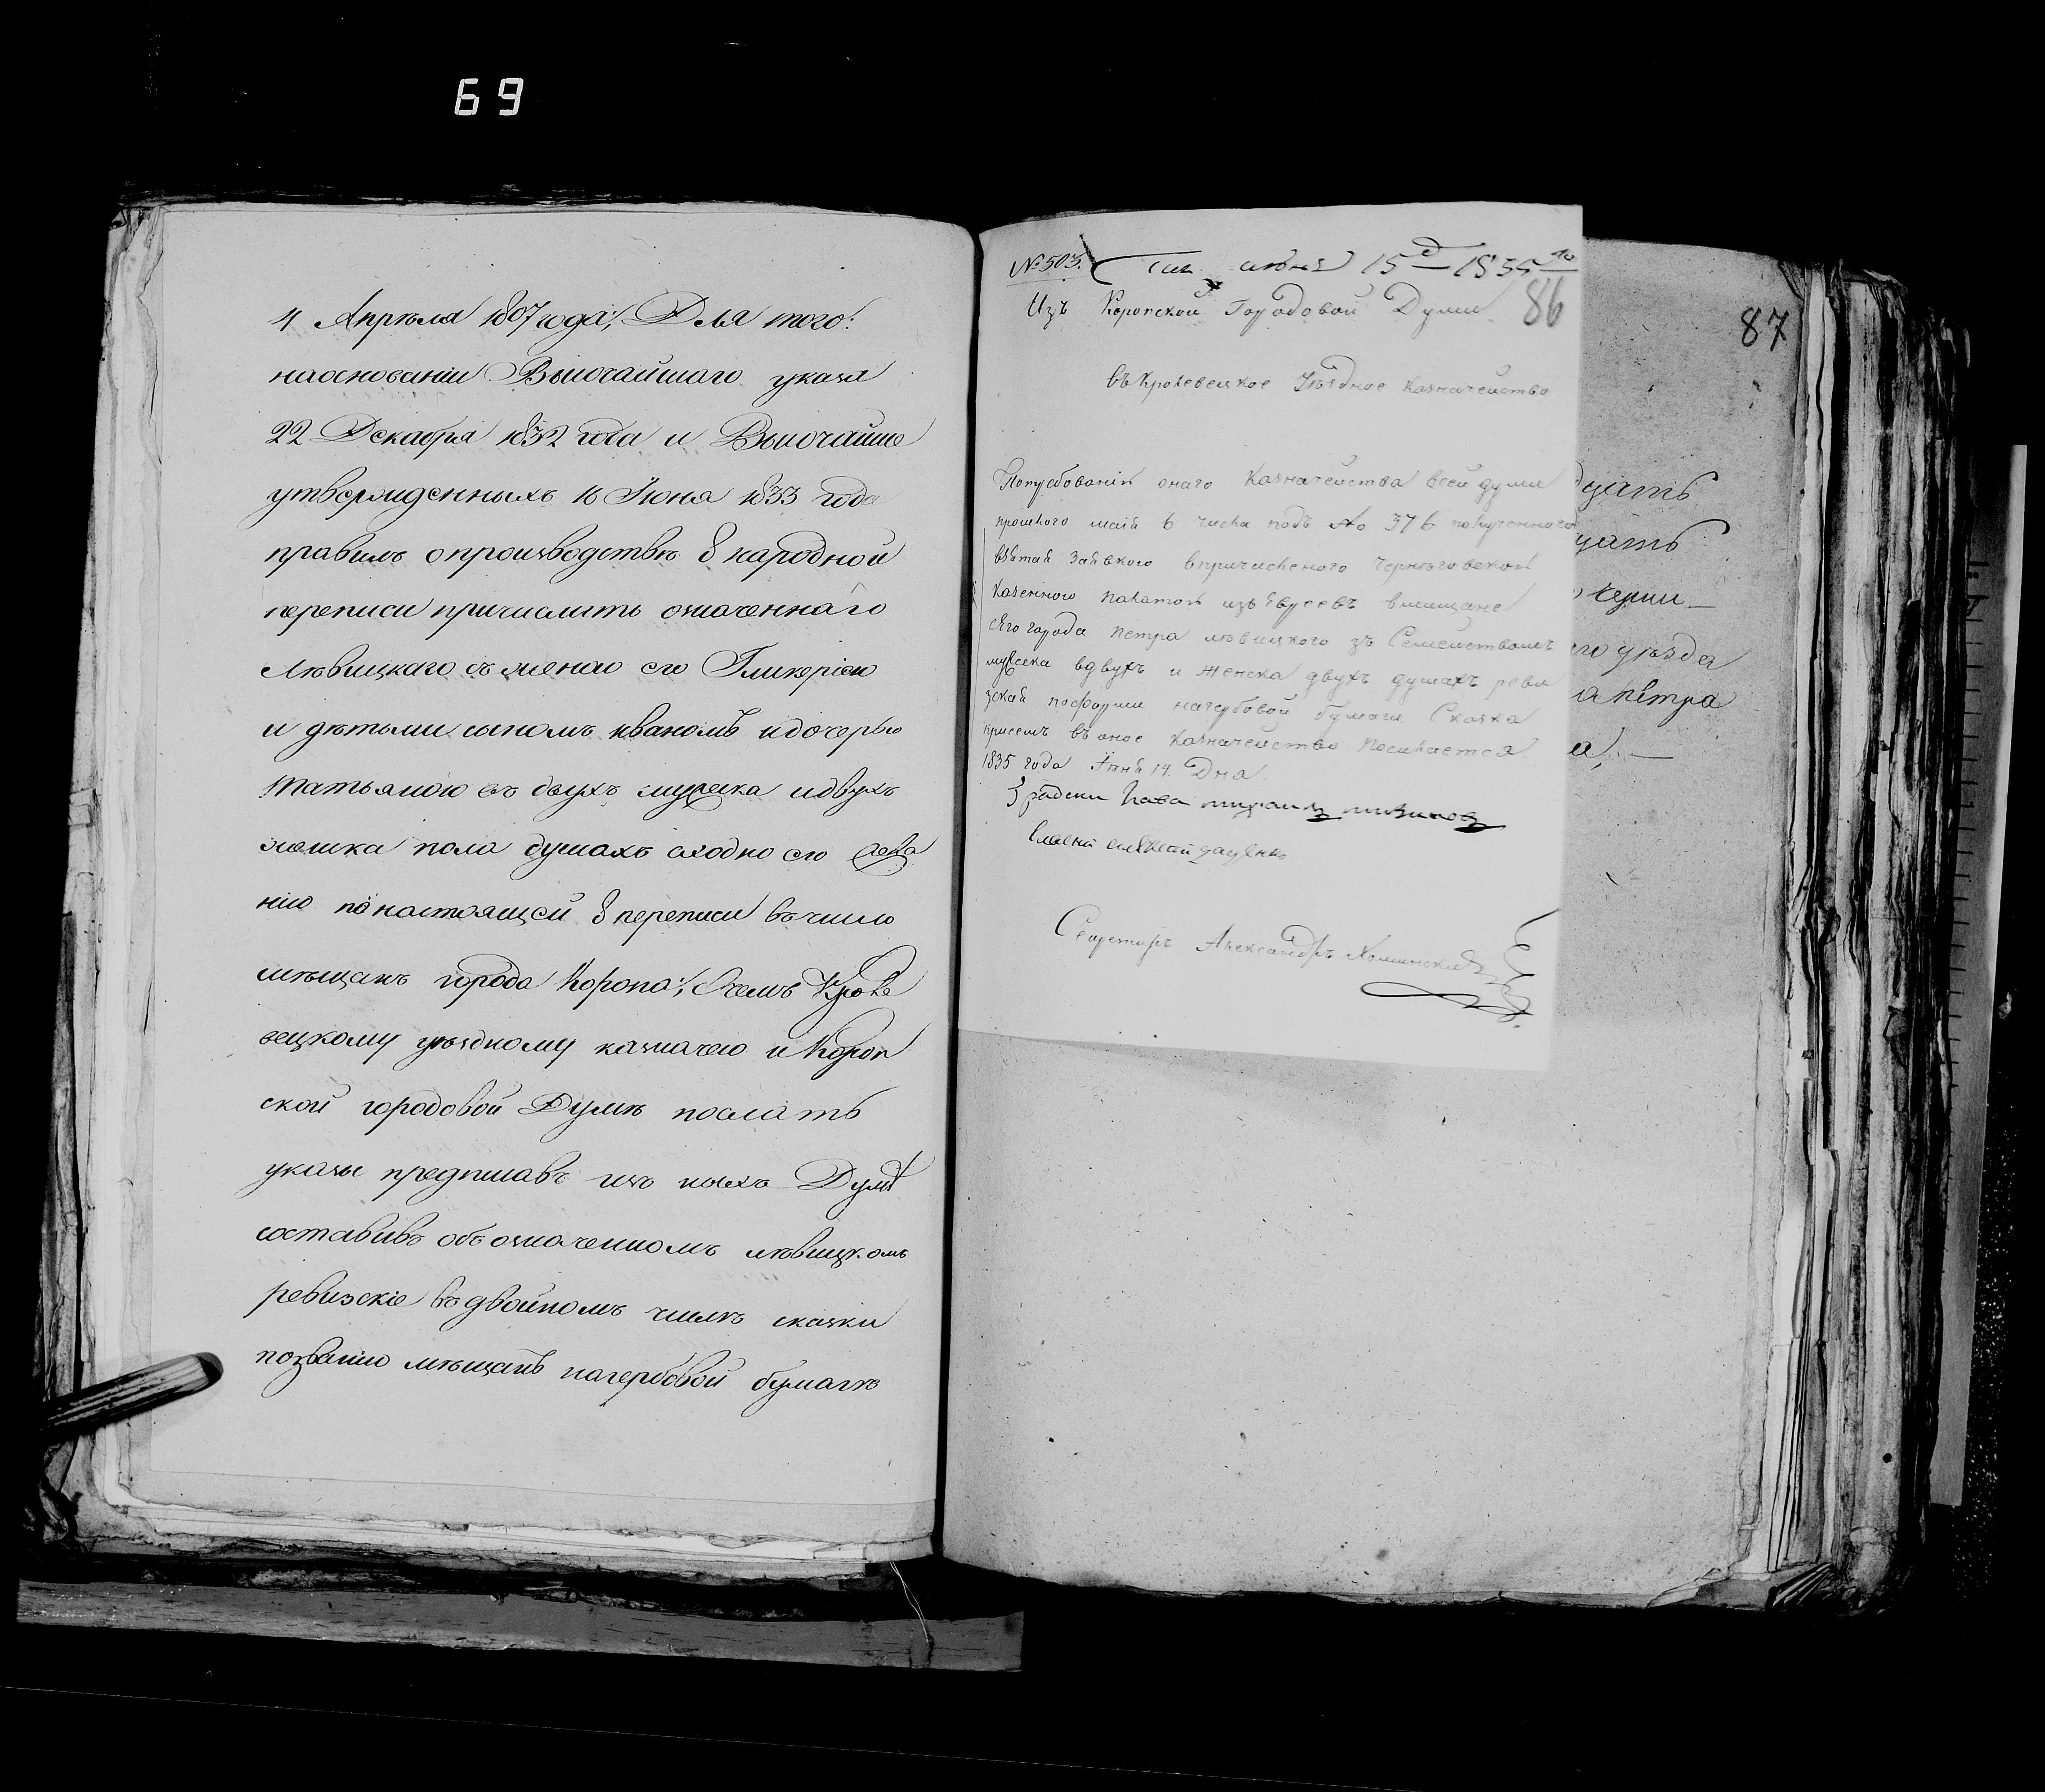 69
4 Апрѣля 1807 года; Для того:
наосновании Высочайшаго указа
22 Декабря 1832 года и Высочайше
утвержденныхъ 16 Июня 1833 года
правилъ о производствѣ 8 народной
переписи причислить означеннаго
Лѣвицкаго съ женою его Гликеріею
и дѣтьми сыномъ Иваномъ и дочерью
Татьяною въ двухъ мужска и двухъ
женска пола душахъ сходно его жела
нию по настоящей 8 переписи въ число
мѣщанъ города Коропа; О чемъ Кроле
вецкому уѣздному казначею и Короп
ской городовой Думѣ послать
указы предписавъ изъ нихъ Думѣ
составивъ объ означенномъ Лѣвицкомъ
ревизские въ двойномъ числѣ сказки
по званию мѣщанъ на гербовой бумагѣ
№ 503. 15 д 1835 го
Изъ Коропской Городовой Думы 86
въ Кролевецкое Уѣздное Казначейство
Потребованию онаго Казначейства всей думи
прошлого маія 6 числа подъ № 376 полученного
впричисленого Черниговской
Казенного Палатою изъ Евреевъ вмищане
сѣго города Петра Лѣвицкого зъ Семействомъ
мужска вдвухъ и женска двухъ душахъ реви
зская пoформи нагербовой бумаги Сказка
присемъ въ оное Казначейство Посилается
1835 года Июня 14. Дня
Секретарь Александръ
87
дцать
цать
черни
го уѣзда
а Петра
а;